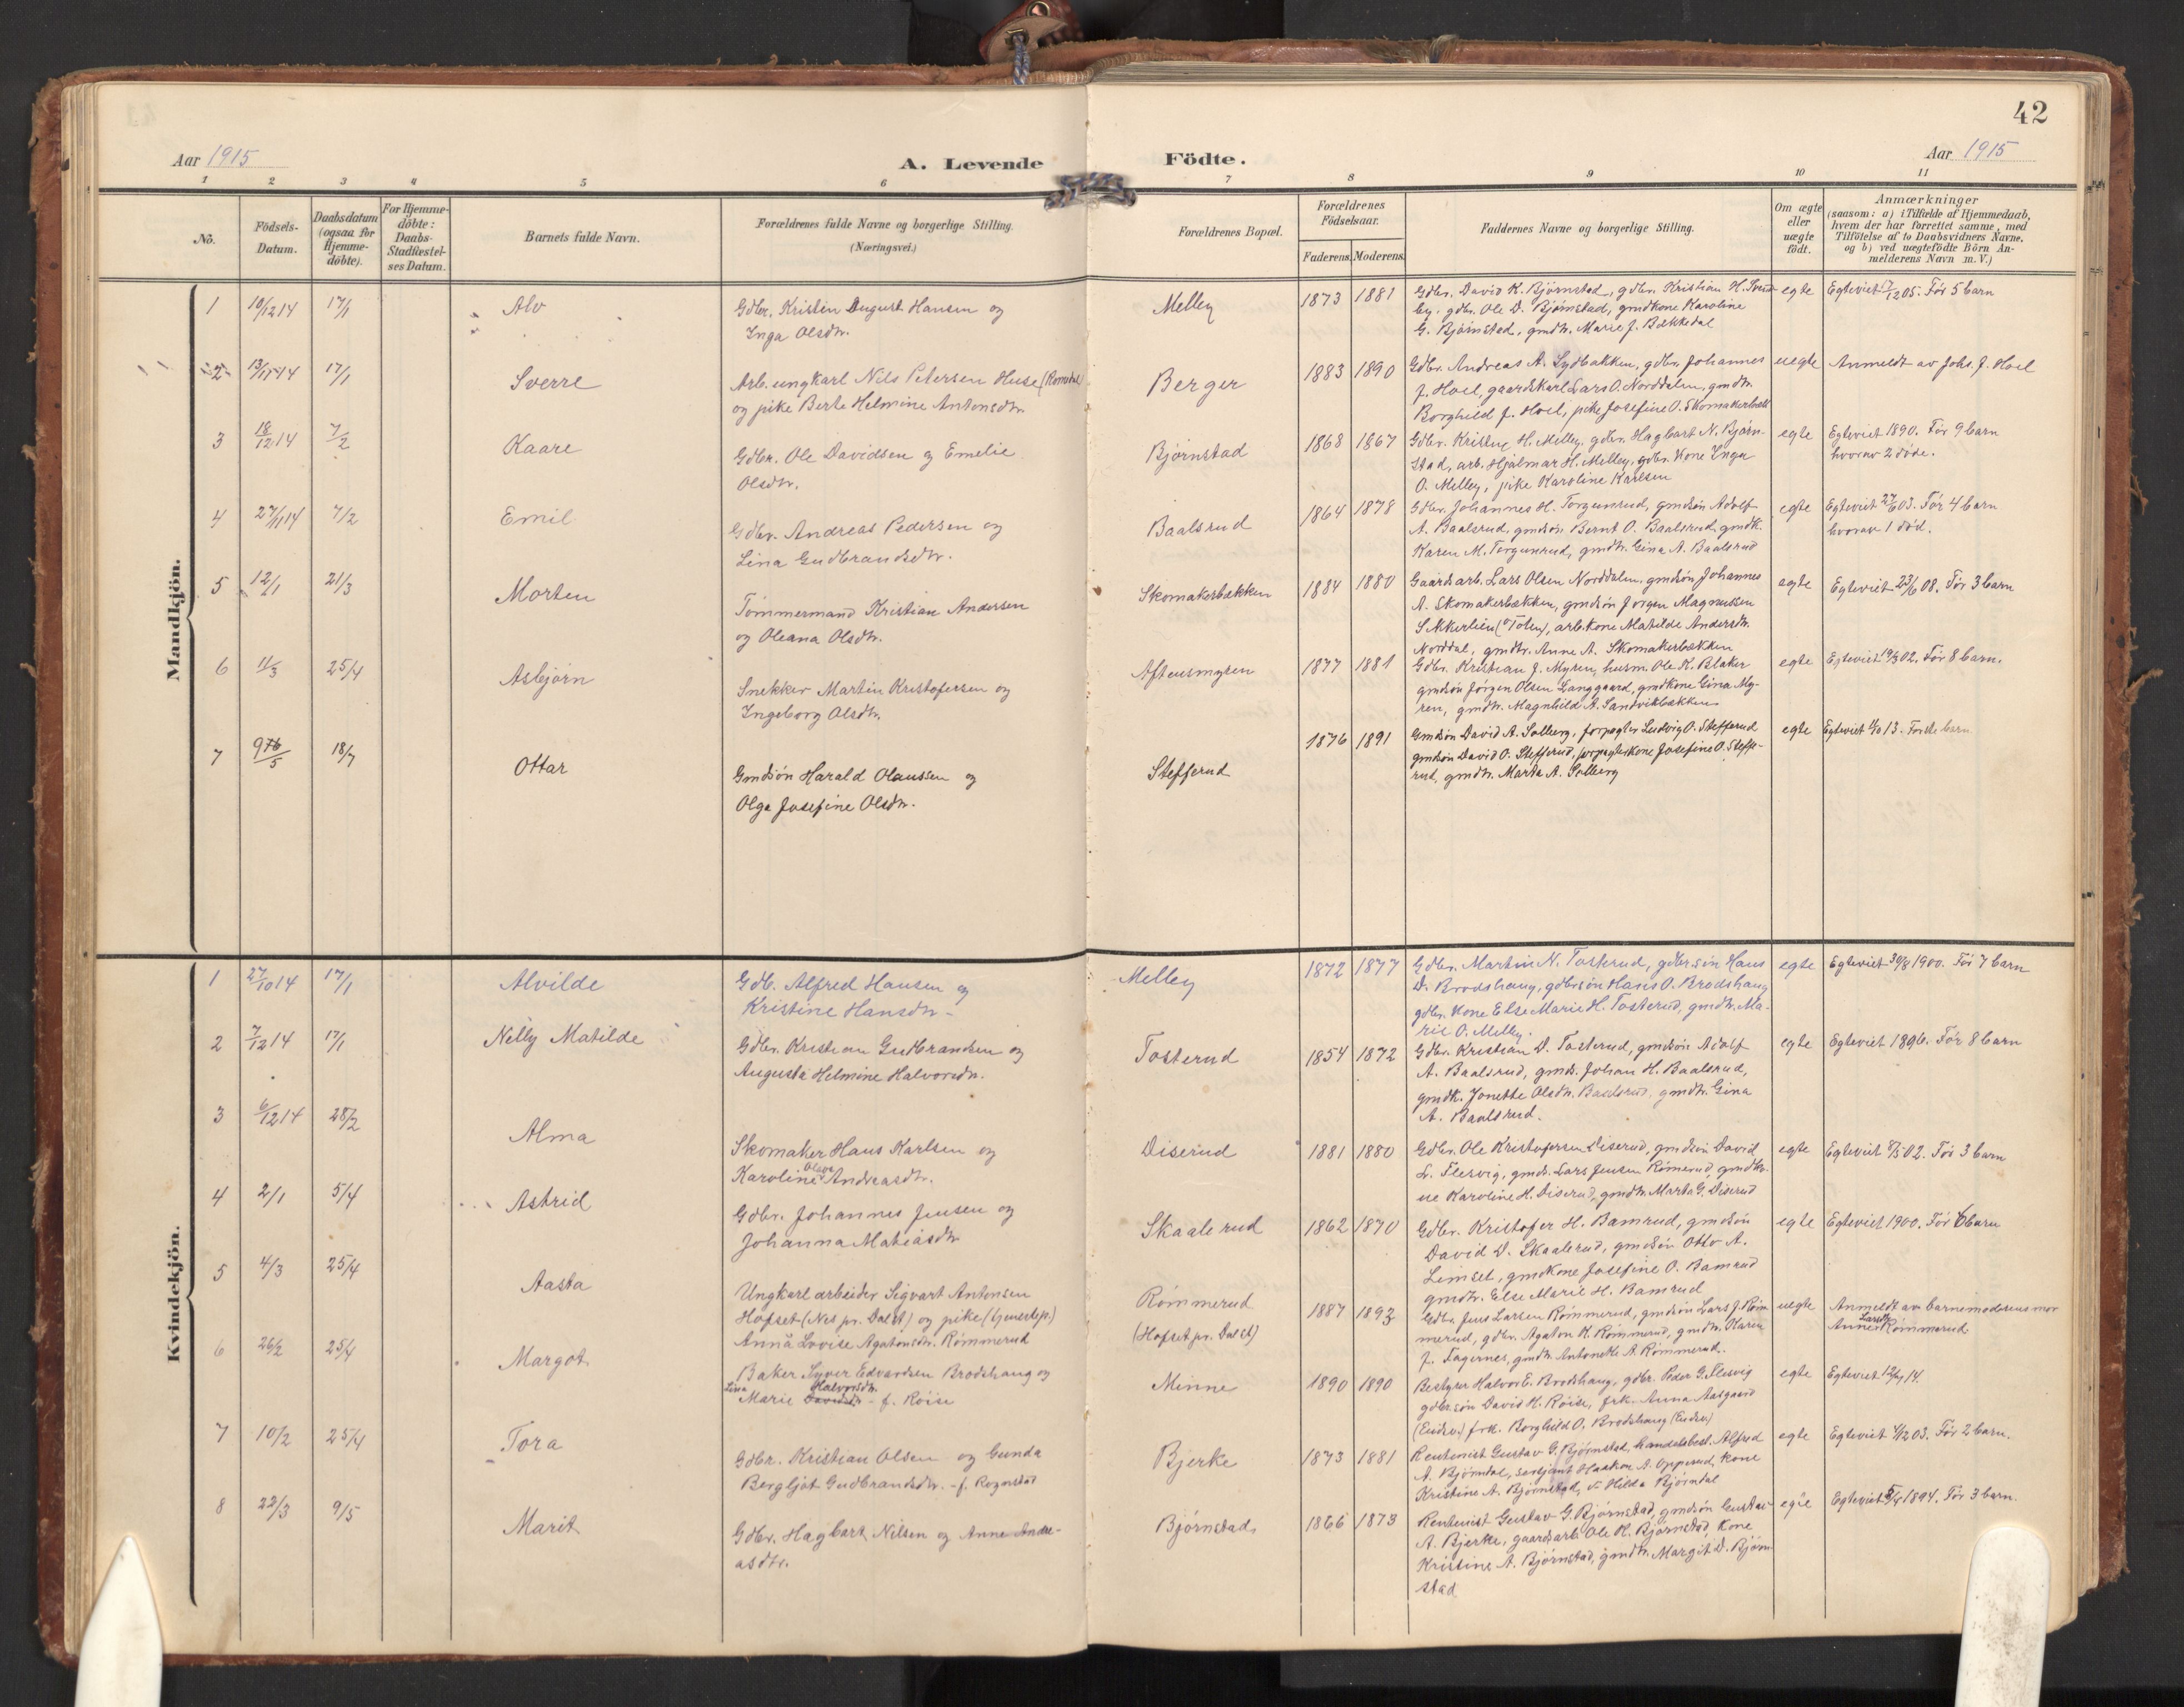 42
Aar 1915
A. Levende Födte.
Aar 1915
1 2 3 4 5 6 7 8 9 10 11
No.
Födsels-
Datum.
Daabsdatum
(ogsaa for
Hjemme-
döbte).
For Hjemme-
döbte:
Daabs-
Stadfæstel-
ses Datum.
Barnets fulde Navn.
Forældrenes fulde Navne og borgerlige Stilling.
(Næringsvei.)
Forældrenes Bopæl.
Forældrenes
Födselsaar.
Faderens. Moderens.
Faddernes Navne og borgerlige Stilling.
Om ægte
eller
uægte
født.
Anmærkninger
(saasom: a) i Tilfælde af Hjemmedaab,
hvem der har forrettet samme, med
Tilføielse af to Daabsvidners Navne,
og b) ved uægtefödte Börn An-
melderens Navn m. V.)
Mandkjön.
1 10/12 14 17/1 Alv
Gdbr. Kristian August Hansen og
Inga Olsdtr.
Melley 1873 1881
Gdbr. David K. Bjørnstad, gdbr. Kristian H.
gdbr. Ole D. Bjørnstad, gmdkone Karoline
G. Bjørnstad, gmdtr. Marie J. Bækkedal
egte
Egteviet 05. Før 5 barn
2 13/11 14 17/1 Sverre
Arb. ungkarl Nils Petersen Huse (Romedal)
og pike Berte Helmine Antonsdtr.
Berger 1883 1890
Gdbr. Andreas A. Sydbakken, gdbr. Johannes
J. Hoel, gaardskarl Lars O. Norddalen, gmdtr.
Borghild J. Hoel, pike Josefine O. Skomakerbækk
uegte
Anmeldt av Johs. J. Hoel
3 18/12 14 7/2 Kaare
Gdbr. Ole Davidsen og Emelie
Olsdtr.
Bjørnstad 1868 1867
Gdbr. Kristian H. Melley, gdbr. Hagbart N. Bjørn-
stad, arb. Hjalmar H. Melley, gdbr. kone Inger
O. Melley, pike Karoline Karlsen
egte
Egteviet 1890. Før 9 barn
hvorav 2 døde.
4 27/11 14 7/2 Emil
Gdbr. Andreas Pedersen og
Lina Gudbrandsdtr.
Baalsrud 1864 1878
Gdbr. Johannes H. Torgunrud, gmdsøn Adolf
A. Baalsrud, gmdsøn Bernt O. Baalsrud, gmdk.
Karen M. Torgunrud, gmdtr. Gina A. Baalsrud
egte
Egteviet 27/6 03. Før 4 barn
hvorav 1 død.
5 12/1 21/3 Morten
Tømmermand Kristian Andersen
og Oleana Olsdtr.
Skomakerbækken 1884 1880
Gaardsarb. Lars Olsen Norddalen, gmdsøn Johannes
A. Skomakerbækken, gmdsøn Jørgen Magnussen
Sikkerlien (Ø Toten), arb.kone Matilde Andersdtr.
Norddal, gmdtr. Anne A. Skomakerbækken
egte
Egteviet 23/6 08. Før 3 barn
6 11/3 25/4 Asbjørn
Snekker Martin Kristofersen og
Ingeborg Olsdtr.
Aftensmyren 1877 1881
Gdbr. Kristian J. Myren, husm. Ole K. Blaker
gmdsøn Jørgen Olsen Langgaard, gmdkone Gina My-
ren, gmdtr. Magnhild A. Sandvikbækken
egte
Egteviet 02. Før 8 barn.
7 18/7 Ottar
Gmdsøn Harald Olaussen og
Olga Josefine Olsdtr.
Stefferud 1876 1891
Gmdsøn David A. Solberg, forpagter Ludvig O. Stefferud
gmdsøn David O. Stefferud, forpagterkone Josefine O. Steffe-
rud, gmdtr. Marta A. Solberg
egte
Egteviet 13. Første barn.
Kvindekjön.
1 27/10 14 17/1 Alvilde
Gdb. Alfred Hansen og
Kristine Hansdtr.
Melley 1872 1877
Gdbr. Martin N. Tosterud, gdbr.søn Hans
D. Brodshaug, gdbrsøn Hans O. Brodshaug
gdbr. kone Else Marie H. Tosterud, gmdtr. Ma-
rie O. Melley.
egte
Egteviet 30/8 1900. Før 7 barn
2 7/12 14 17/1 Nelly Matilde
Gdbr. Kristian Gudbrandsen og
Augusta Helmine Halvorsdtr.
Tosterud 1854 1872
Gdbr. Kristian D. Tosterud, gmdsøn Adolf
A. Baalsrud, gmds. Johan H. Baalsrud,
gmdk. Jonette Olsdtr. Baalsrud, gmdtr. Gina
A. Baalsrud.
egte
Egteviet 1896. Før 8 barn
3 6/12 14 28/2 Alma
Skomaker Hans Karlsen og
Karoline Olava Andreasdtr.
Diserud 1881 1880
Gdbr. Ole Kristofersen Diserud, gmdsøn David
L. Flesvig, gmds. Lars Jensen Rømerud, gmdko-
ne Karoline H. Diserud, gmdtr. Marta G. Diserud
egte
Egteviet 8/5 02. Før 3 barn
4 2/1 5/4 Astrid
Gdbr. Johannes Jensen og
Johanna Matiasdtr.
Skaalerud 1862 1870
Gdbr. Kristofer H. Bamrud, gmdsøn
David D. Skaalerud, gmdsøn Otto A.
Limset, gmdkone Josefine O. Bamrud
gmdtr. Else Marie H. Bamrud
egte
Egteviet 1900. Før 6 barn
5 4/3 25/4 Aasta
Ungkarl arbeider Sigvart Antonsen
Hofset (Nes pr. Dalst) og pike (tjenestep.)
Anna Lovise Agatonsdtr. Rømmerud
Rømmerud
(Hofset pr. Dalst)
1887 1893
Gdbr. Jens Larsen Rømmerud, gmdsøn Lars J. Røm
merud, gdbr. Agaton K. Rømmerud, gmdtr. Karen
J. Fagernes, gmdtr. Antonette A. Rømmerud.
uegte
Anmeldt av barnemoderens mor
Anne Larsdtr. Rømmerud
6 26/2 25/4 Margot
Baker Syver Edvardsen Brodshaug og
Lina Marie Davidsdtr. Halvorsdtr. - f. Røise
Minne 1890 1890
Bestyrer Halvor E. Brodshaug, gdbr. Peder G. Flesvig
gdbr.søn David H. Røise, frk. Anna Aasgaard
(Eidsv.) frk. Borghild O. Brodshaug (Eidsv.)
egte
Egteviet 12/4 14.
7 10/2 25/4 Tora
Gdbr. Kristian Olsen og Gunda
Bergljot Gudbrandsdtr. - f. Rognstad
Bjerke 1873 1881
Rentenist Gustav G. Bjørnstad, handelsbest. Alfred
A. Bjørndal, serjant Haakon A. Opperud, kone
Kristine A. Bjørnstad, Hilda Bjørndal
egte
Egteviet 4/12 03. Før 2 barn.
8 22/3 9/5 Marit
Gdbr. Hagbart Nilsen og Anne Andre-
asdtr.
Bjørnstad 1866 1873
Rentenist Gustav G. Bjørnstad, gmdsøn Gustav
A. Bjerke, gaardsarb. Ole K. Bjørnstad, kone
Kristine A. Bjørnstad, gmdtr. Margit D. Bjørn-
stad
egte
Egteviet 1894. Før 3 barn.